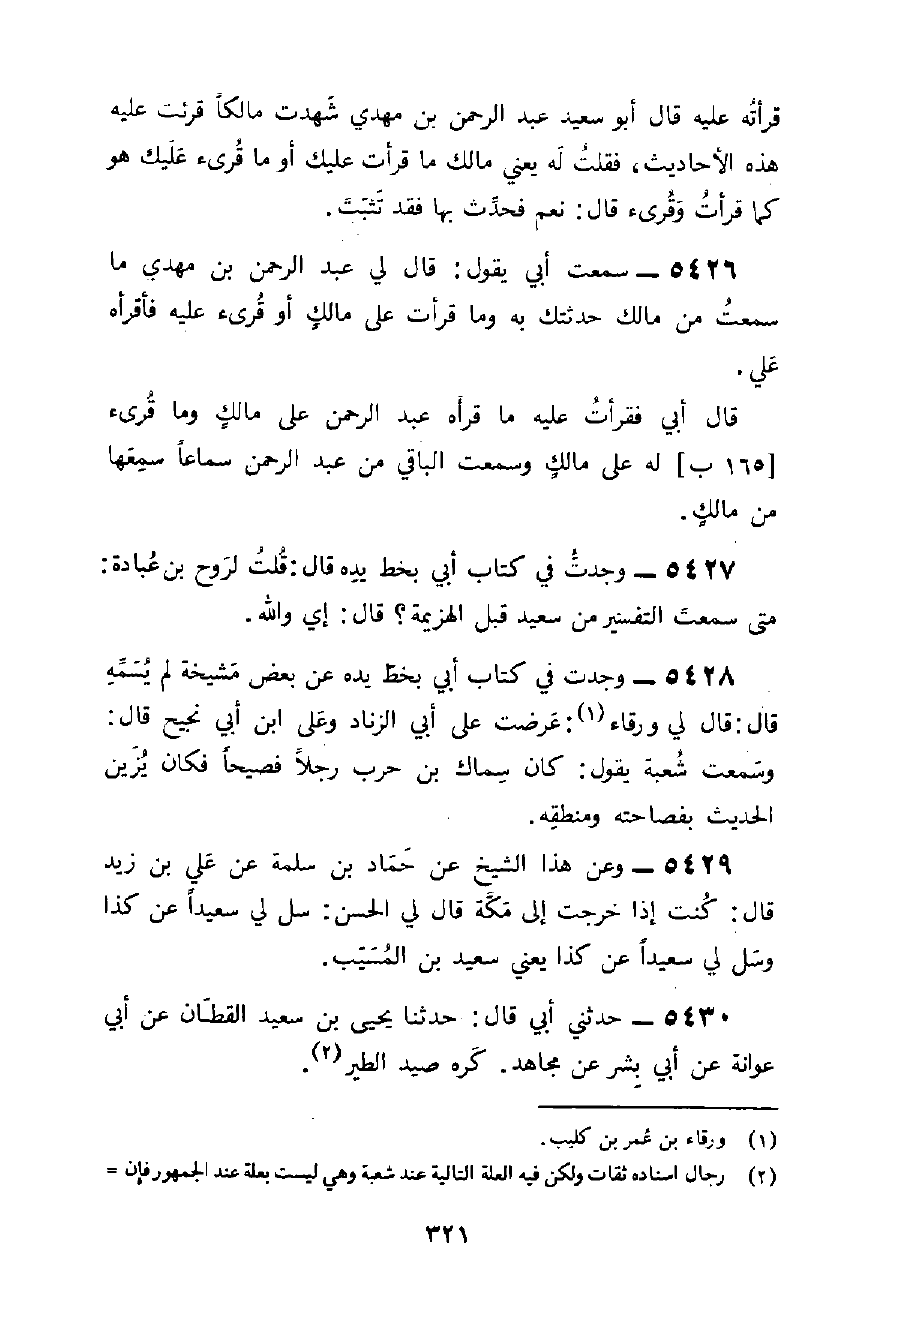 قرأته عليه قال أبو سعيد عبد الرحمن بن مهدي شَهدت مالكاً قرئت عليه
هذه الأحاديث، فقلتُ لَه يعني مالك ما قرأت عليك أو ما قُرىء عَلَيك هو
كما قرأتُ وَقُرىء قال: نعم فحدِّث بها فقد تَثبَّتَ.
٥٤٢٦ — سمعت أبي يقول: قال لي عبد الرحمن بن مهدي ما
سمعتُ من مالك حدثتك به وما قرأت على مالكٍ أو قُرىء عليه فأقرأه
عَلي.
قال أبي فقرأتُ عليه ما قرأه عبد الرحمن على مالكٍ وما قُرىء
[١٦٥ ب] له على مالكٍ وسمعت الباقي من عبد الرحمن سماعاً سمِعَها
من مالكٍ.
٥٤٢٧ — وجدتُّ في كتاب أبي بخط يده قال: قُلتُ لرَوح بن عُبادة:
متى سمعتَ التفسير من سعيد قبل الهزيمة؟ قال: إي والله.
٥٤٢٨ — وجدت في كتاب أبي بخط يده عن بعض مَشيخة لم يُسَمِّهِ
قال: قال لي ورقاء(١): عَرضت على أبي الزناد وعَلى ابن أبي نجيح قال:
وسَمعت شُعبة يقول: كان سِماك بن حرب رجلاً فصيحاً فكان يُزَين
الحديث بفصاحته ومنطقِه.
٥٤٢٩ — وعن هذا الشيخ عن حَمّاد بن سلمة عن عَلي بن زيد
قال: كُنت إذا خرجت إلى مَكَّة قال لي الحسن: سل لي سعيداً عن كذا
وسَل لي سعيداً عن كذا يعني سعيد بن المُسَيَّب.
٥٤٣٠ — حدثني أبي قال: حدثنا يحيى بن سعيد القطّان عن أبي
عوانة عن أبي بِشر عن مجاهد. كَره صيد الطير(٢).
(١) ورقاء بن عُمر بن كليب.
(٢) رجال اسناده ثقات ولكن فيه العلة التالية عند شعبة وهي ليست بعلة عند الجمهور فإن =
٣٢١